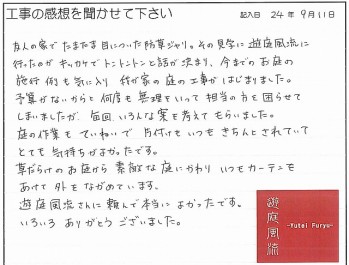 工事の感想を聞かせて下さい
記入日 24年 9月11日
友人の家でたまたま目についた防草ジャリ。その見学に遊庭風流に
行ったのが キッカケで トントントンと話が決まり、今までのお庭の
施行例も気に入り 我が家の庭の工事がはじまりました。
予算がないからと何度も無理をいって担当の方を困らせて
しまいましたが 毎回いろんな案を考えてもらいました。
庭の作業も ていねいで 片付けも いつも きちんとされていて
とても 気持ちがよかったです。
草だらけのお庭から 素敵な 庭にかわり いつもカーテンを
あけて外をながめています。
遊庭風流さんに頼んで本当に よかったです。
いろいろ ありがとう ございました。
遊庭風流
-Yutei Furyu-